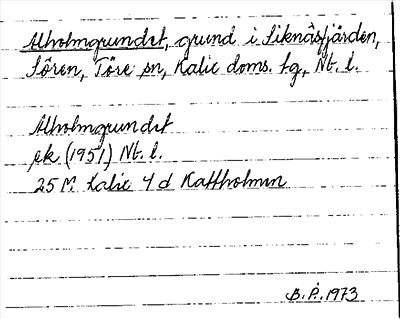 Alholmsgrundet, grund i Siknäsfjärden,
Sören, Töre sn, Kalix doms. tg, Nb. l.
Alholmsgrundet
ek (1951) Nb. l.
25 M Kalix 4 d Kattholmen
B. P. 1973